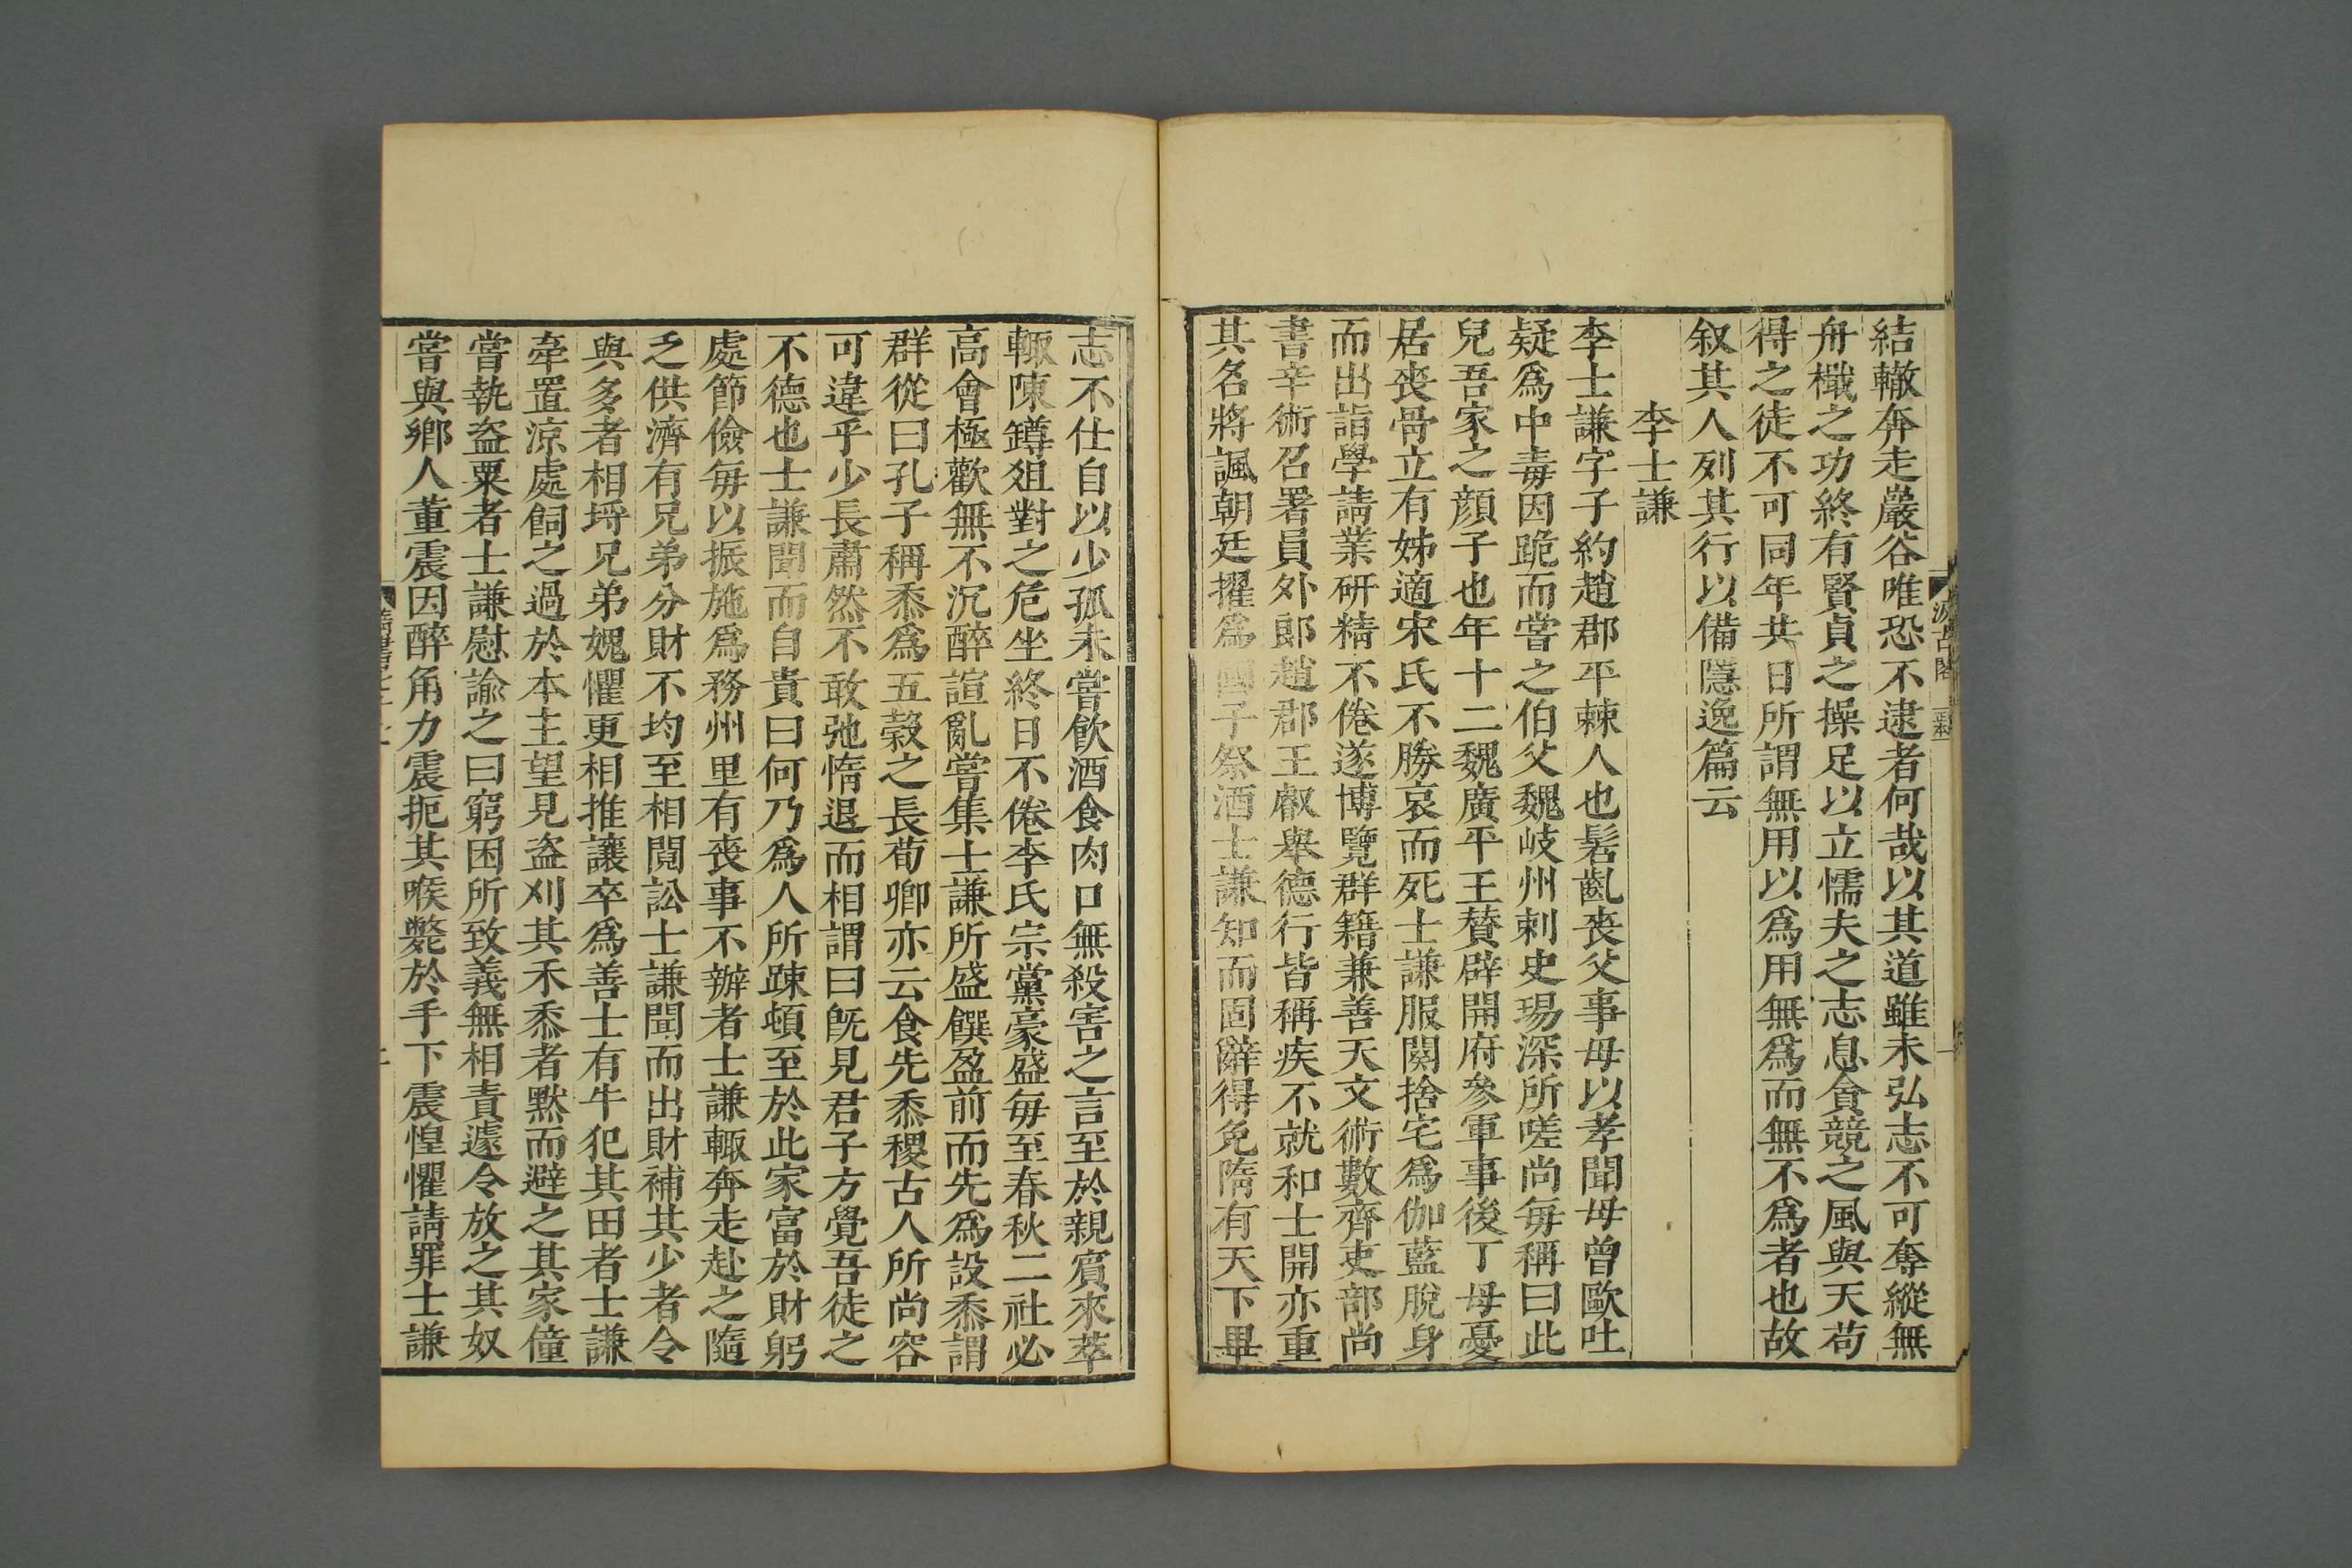 結轍奔走巖谷唯恐不逮者何哉以其道雖未弘志不可奪縱無
舟檝之功終有賢貞之操足以立懦夫之志息貪競之風與夫苟
得之徒不可同年共日所謂無用以為用無為而無不為者也故
叙其人列其行以備隱逸篇云
李士謙
李士謙字子約趙郡平棘人也髫齓喪父事母以孝聞母曾歐吐
疑爲中毒因跪而嘗之伯父魏岐州刺史瑒深所嗟尚每稱曰此
兒吾家之顔子也年十二魏廣平王贊辟開府參軍事後丁母憂
居喪骨立有姊適宋氏不勝哀而死士謙服闋捨宅爲伽藍脫身
而出詣學請業研精不倦遂博覽群籍兼善天文術數齊吏部尚
書辛術召署員外郎趙郡王叡舉德行皆稱疾不就和士開亦重
其名將諷朝廷擢爲國子祭酒士謙知而固辭得免隋有天下畢
汲古閣
志不仕自以少孤未嘗飲酒食肉口無殺害之言至於親賓來萃
輙陳罇俎對之危坐終日不倦李氏宗黨豪盛每至春秋二社必
高會極歡無不沉醉諠亂嘗集士謙所盛饌盈前而先爲設黍謂
群從曰孔子稱黍爲五穀之長荀卿亦云食先黍稷古人所尚容
可違乎少長肅然不敢弛惰退而相謂曰旣見君子方覺吾徒之
不德也士謙聞而自責曰何乃爲人所踈頓至於此家富於財躬
處節儉每以振施爲務州里有喪事不辦者士謙輙奔走赴之隨
乏供濟有兄弟分財不均至相鬩訟士謙聞而出財補其少者令
與多者相埒兄弟媿懼更相推讓卒爲善士有牛犯其田者士謙
牽置涼處飼之過於本主望見盜刈其禾黍者默而避之其家僮
嘗執盜粟者士謙慰諭之曰窮困所致義無相責遽令放之其奴
嘗與鄉人董震因醉角力震扼其喉斃於手下震惶懼請罪士謙